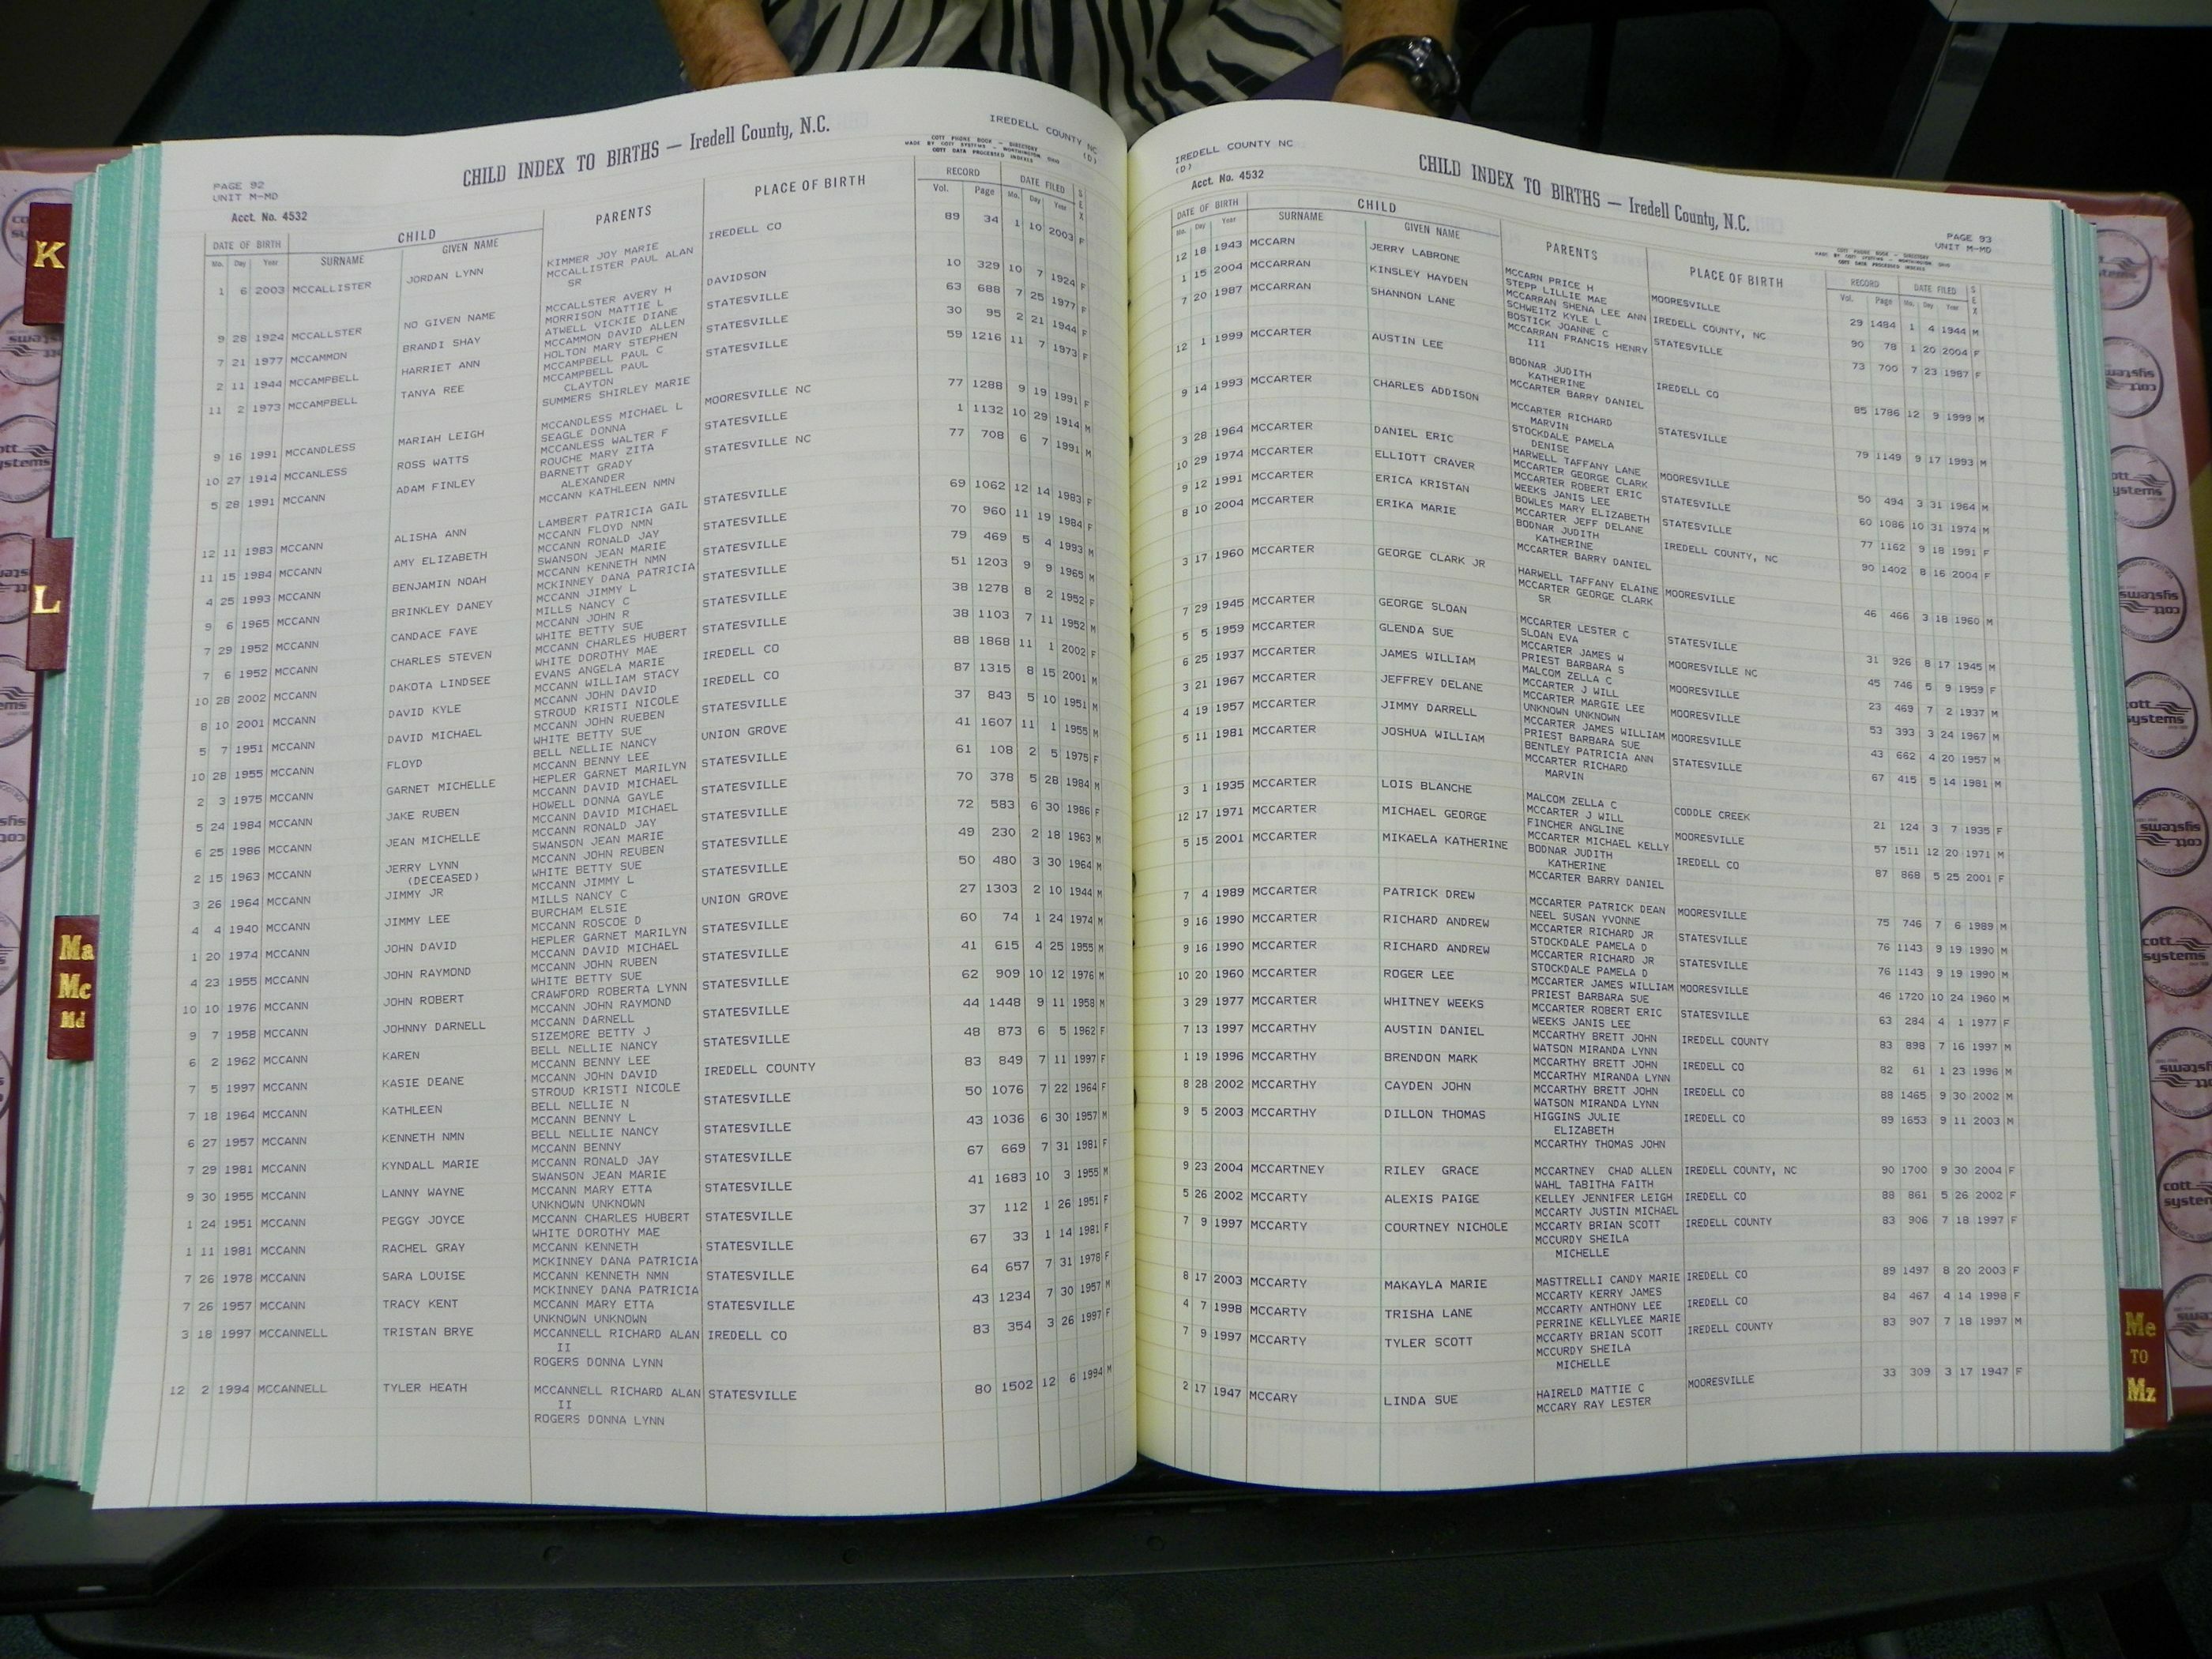 PAGE 92
UNIT M-MD
CHILD INDEX TO BIRTHS — Iredell County, N.C.
IREDELL COUNTY NC
(D)
COTT PHONE BOOK - DIRECTORY
MADE BY COTT SYSTEMS - WORTHINGTON, OHIO
COTT DATA PROCESSED INDEXES
Acct. No. 4532
DATE OF BIRTH CHILD PARENTS PLACE OF BIRTH RECORD DATE FILED SEX
Mo. Day Year SURNAME GIVEN NAME Vol. Page Mo. Day Year
1 6 2003 MCCALLISTER JORDAN LYNN KIMMER JOY MARIE IREDELL CO 89 34 1 10 2003 F
MCCALLISTER PAUL ALAN
SR
9 28 1924 MCCALLSTER NO GIVEN NAME MCCALLSTER AVERY H DAVIDSON 10 329 10 7 1924 F
MORRISON MATTIE L
7 21 1977 MCCAMMON BRANDI SHAY ATWELL VICKIE DIANE STATESVILLE 63 688 7 25 1977 F
MCCAMMON DAVID ALLEN
2 11 1944 MCCAMPBELL HARRIET ANN HOLTON MARY STEPHEN STATESVILLE 30 95 2 21 1944 F
MCCAMPBELL PAUL C
11 2 1973 MCCAMPBELL TANYA REE MCCAMPBELL PAUL STATESVILLE 59 1216 11 7 1973 F
CLAYTON
SUMMERS SHIRLEY MARIE
9 16 1991 MCCANDLESS MARIAH LEIGH MCCANDLESS MICHAEL L MOORESVILLE NC 77 1288 9 19 1991 F
SEAGLE DONNA
10 27 1914 MCCANLESS ROSS WATTS MCCANLESS WALTER F STATESVILLE 1 1132 10 29 1914 M
ROUCHE MARY ZITA
5 28 1991 MCCANN ADAM FINLEY BARNETT GRADY STATESVILLE NC 77 708 6 7 1991 M
ALEXANDER
MCCANN KATHLEEN NMN
12 11 1983 MCCANN ALISHA ANN LAMBERT PATRICIA GAIL STATESVILLE 69 1062 12 14 1983 F
MCCANN FLOYD NMN
11 15 1984 MCCANN AMY ELIZABETH MCCANN RONALD JAY STATESVILLE 70 960 11 19 1984 F
SWANSON JEAN MARIE
4 25 1993 MCCANN BENJAMIN NOAH MCCANN KENNETH NMN STATESVILLE 79 469 5 4 1993 M
MCKINNEY DANA PATRICIA
9 6 1965 MCCANN BRINKLEY DANEY MCCANN JIMMY L STATESVILLE 51 1203 9 9 1965 M
MILLS NANCY C
7 29 1952 MCCANN CANDACE FAYE MCCANN JOHN R STATESVILLE 38 1278 8 2 1952 F
WHITE BETTY SUE
7 6 1952 MCCANN CHARLES STEVEN MCCANN CHARLES HUBERT STATESVILLE 38 1103 7 11 1952 M
WHITE DOROTHY MAE
10 28 2002 MCCANN DAKOTA LINDSEE EVANS ANGELA MARIE IREDELL CO 88 1868 11 1 2002 F
MCCANN WILLIAM STACY
8 10 2001 MCCANN DAVID KYLE MCCANN JOHN DAVID IREDELL CO 87 1315 8 15 2001 M
STROUD KRISTI NICOLE
5 7 1951 MCCANN DAVID MICHAEL MCCANN JOHN RUEBEN STATESVILLE 37 843 5 10 1951 M
WHITE BETTY SUE
10 28 1955 MCCANN FLOYD BELL NELLIE NANCY UNION GROVE 41 1607 11 1 1955 M
MCCANN BENNY LEE
2 3 1975 MCCANN GARNET MICHELLE HEPLER GARNET MARILYN STATESVILLE 61 108 2 5 1975 F
MCCANN DAVID MICHAEL
5 24 1984 MCCANN JAKE RUBEN HOWELL DONNA GAYLE STATESVILLE 70 378 5 28 1984 M
MCCANN DAVID MICHAEL
6 25 1986 MCCANN JEAN MICHELLE MCCANN RONALD JAY STATESVILLE 72 583 6 30 1986 F
SWANSON JEAN MARIE
2 15 1963 MCCANN JERRY LYNN MCCANN JOHN REUBEN STATESVILLE 49 230 2 18 1963 M
(DECEASED) WHITE BETTY SUE
3 26 1964 MCCANN JIMMY JR MCCANN JIMMY L STATESVILLE 50 480 3 30 1964 M
MILLS NANCY C
4 4 1940 MCCANN JIMMY LEE BURCHAM ELSIE UNION GROVE 27 1303 2 10 1944 M
MCCANN ROSCOE D
1 20 1974 MCCANN JOHN DAVID HEPLER GARNET MARILYN STATESVILLE 60 74 1 24 1974 M
MCCANN DAVID MICHAEL
4 23 1955 MCCANN JOHN RAYMOND MCCANN JOHN RUBEN STATESVILLE 41 615 4 25 1955 M
WHITE BETTY SUE
10 10 1976 MCCANN JOHN ROBERT CRAWFORD ROBERTA LYNN STATESVILLE 62 909 10 12 1976 M
MCCANN JOHN RAYMOND
9 7 1958 MCCANN JOHNNY DARNELL MCCANN DARNELL STATESVILLE 44 1448 9 11 1958 M
SIZEMORE BETTY J
6 2 1962 MCCANN KAREN BELL NELLIE NANCY STATESVILLE 48 873 6 5 1962 F
MCCANN BENNY LEE
7 5 1997 MCCANN KASIE DEANE MCCANN JOHN DAVID IREDELL COUNTY 83 849 7 11 1997 F
STROUD KRISTI NICOLE
7 18 1964 MCCANN KATHLEEN BELL NELLIE N STATESVILLE 50 1076 7 22 1964 F
MCCANN BENNY L
6 27 1957 MCCANN KENNETH NMN BELL NELLIE NANCY STATESVILLE 43 1036 6 30 1957 M
MCCANN BENNY
7 29 1981 MCCANN KYNDALL MARIE MCCANN RONALD JAY STATESVILLE 67 669 7 31 1981 F
SWANSON JEAN MARIE
9 30 1955 MCCANN LANNY WAYNE MCCANN MARY ETTA STATESVILLE 41 1683 10 3 1955 M
UNKNOWN UNKNOWN
1 24 1951 MCCANN PEGGY JOYCE MCCANN CHARLES HUBERT STATESVILLE 37 112 1 26 1951 F
WHITE DOROTHY MAE
1 11 1981 MCCANN RACHEL GRAY MCCANN KENNETH STATESVILLE 67 33 1 14 1981 F
MCKINNEY DANA PATRICIA
7 26 1978 MCCANN SARA LOUISE MCCANN KENNETH NMN STATESVILLE 64 657 7 31 1978 F
MCKINNEY DANA PATRICIA
7 26 1957 MCCANN TRACY KENT MCCANN MARY ETTA STATESVILLE 43 1234 7 30 1957 M
UNKNOWN UNKNOWN
3 18 1997 MCCANNELL TRISTAN BRYE MCCANNELL RICHARD ALAN IREDELL CO 83 354 3 26 1997 F
II
ROGERS DONNA LYNN
12 2 1994 MCCANNELL TYLER HEATH MCCANNELL RICHARD ALAN STATESVILLE 80 1502 12 6 1994 M
II
ROGERS DONNA LYNN
IREDELL COUNTY NC
(D)
CHILD INDEX TO BIRTHS — Iredell County, N.C.
PAGE 93
UNIT M-MD
COTT PHONE BOOK - DIRECTORY
MADE BY COTT SYSTEMS - WORTHINGTON, OHIO
COTT DATA PROCESSED INDEXES
Acct. No. 4532
DATE OF BIRTH CHILD PARENTS PLACE OF BIRTH RECORD DATE FILED SEX
Mo. Day Year SURNAME GIVEN NAME Vol. Page Mo. Day Year
12 18 1943 MCCARN JERRY LABRONE MCCARN PRICE H MOORESVILLE 29 1484 1 4 1944 M
STEPP LILLIE MAE
1 15 2004 MCCARRAN KINSLEY HAYDEN MCCARRAN SHENA LEE ANN IREDELL COUNTY, NC 90 78 1 20 2004 F
SCHWEITZ KYLE L
7 20 1987 MCCARRAN SHANNON LANE BOSTICK JOANNE C STATESVILLE 73 700 7 23 1987 F
MCCARRAN FRANCIS HENRY
III
12 1 1999 MCCARTER AUSTIN LEE BODNAR JUDITH IREDELL CO 85 1786 12 9 1999 M
KATHERINE
MCCARTER BARRY DANIEL
9 14 1993 MCCARTER CHARLES ADDISON MCCARTER RICHARD STATESVILLE 79 1149 9 17 1993 M
MARVIN
STOCKDALE PAMELA
DENISE
3 28 1964 MCCARTER DANIEL ERIC HARWELL TAFFANY LANE MOORESVILLE 50 494 3 31 1964 M
MCCARTER GEORGE CLARK
10 29 1974 MCCARTER ELLIOTT CRAVER MCCARTER ROBERT ERIC STATESVILLE 60 1086 10 31 1974 M
WEEKS JANIS LEE
9 12 1991 MCCARTER ERICA KRISTAN BOWLES MARY ELIZABETH STATESVILLE 77 1162 9 18 1991 F
MCCARTER JEFF DELANE
8 10 2004 MCCARTER ERIKA MARIE BODNAR JUDITH IREDELL COUNTY, NC 90 1402 8 16 2004 F
KATHERINE
MCCARTER BARRY DANIEL
3 17 1960 MCCARTER GEORGE CLARK JR HARWELL TAFFANY ELAINE MOORESVILLE 46 466 3 18 1960 M
MCCARTER GEORGE CLARK
SR
7 29 1945 MCCARTER GEORGE SLOAN MCCARTER LESTER C STATESVILLE 31 926 8 17 1945 M
SLOAN EVA
5 5 1959 MCCARTER GLENDA SUE MCCARTER JAMES W MOORESVILLE NC 45 746 5 9 1959 F
PRIEST BARBARA S
6 25 1937 MCCARTER JAMES WILLIAM MALCOM ZELLA C MOORESVILLE 23 469 7 2 1937 M
MCCARTER J WILL
3 21 1967 MCCARTER JEFFREY DELANE MCCARTER MARGIE LEE MOORESVILLE 53 393 3 24 1967 M
UNKNOWN UNKNOWN
4 19 1957 MCCARTER JIMMY DARRELL MCCARTER JAMES WILLIAM MOORESVILLE 43 662 4 20 1957 M
PRIEST BARBARA SUE
5 11 1981 MCCARTER JOSHUA WILLIAM BENTLEY PATRICIA ANN STATESVILLE 67 415 5 14 1981 M
MCCARTER RICHARD
MARVIN
3 1 1935 MCCARTER LOIS BLANCHE MALCOM ZELLA C CODDLE CREEK 21 124 3 7 1935 F
MCCARTER J WILL
12 17 1971 MCCARTER MICHAEL GEORGE FINCHER ANGLINE MOORESVILLE 57 1511 12 20 1971 M
MCCARTER MICHAEL KELLY
5 15 2001 MCCARTER MIKAELA KATHERINE BODNAR JUDITH IREDELL CO 87 868 5 25 2001 F
KATHERINE
MCCARTER BARRY DANIEL
7 4 1989 MCCARTER PATRICK DREW MCCARTER PATRICK DEAN MOORESVILLE 75 746 7 6 1989 M
NEEL SUSAN YVONNE
9 16 1990 MCCARTER RICHARD ANDREW MCCARTER RICHARD JR STATESVILLE 76 1143 9 19 1990 M
STOCKDALE PAMELA D
9 16 1990 MCCARTER RICHARD ANDREW MCCARTER RICHARD JR STATESVILLE 76 1143 9 19 1990 M
STOCKDALE PAMELA D
10 20 1960 MCCARTER ROGER LEE MCCARTER JAMES WILLIAM MOORESVILLE 46 1720 10 24 1960 M
PRIEST BARBARA SUE
3 29 1977 MCCARTER WHITNEY WEEKS MCCARTER ROBERT ERIC STATESVILLE 63 284 4 1 1977 F
WEEKS JANIS LEE
7 13 1997 MCCARTHY AUSTIN DANIEL MCCARTHY BRETT JOHN IREDELL COUNTY 83 898 7 16 1997 M
WATSON MIRANDA LYNN
1 19 1996 MCCARTHY BRENDON MARK MCCARTHY BRETT JOHN IREDELL CO 82 61 1 23 1996 M
MCCARTHY MIRANDA LYNN
8 28 2002 MCCARTHY CAYDEN JOHN MCCARTHY BRETT JOHN IREDELL CO 88 1465 9 30 2002 M
WATSON MIRANDA LYNN
9 5 2003 MCCARTHY DILLON THOMAS HIGGINS JULIE IREDELL CO 89 1653 9 11 2003 M
ELIZABETH
MCCARTHY THOMAS JOHN
9 23 2004 MCCARTNEY RILEY GRACE MCCARTNEY CHAD ALLEN IREDELL COUNTY, NC 90 1700 9 30 2004 F
WAHL TABITHA FAITH
5 26 2002 MCCARTY ALEXIS PAIGE KELLEY JENNIFER LEIGH IREDELL CO 88 861 5 26 2002 F
MCCARTY JUSTIN MICHAEL
7 9 1997 MCCARTY COURTNEY NICHOLE MCCARTY BRIAN SCOTT IREDELL COUNTY 83 906 7 18 1997 F
MCCURDY SHEILA
MICHELLE
8 17 2003 MCCARTY MAKAYLA MARIE MASTTRELLI CANDY MARIE IREDELL CO 89 1497 8 20 2003 F
MCCARTY KERRY JAMES
4 7 1998 MCCARTY TRISHA LANE MCCARTY ANTHONY LEE IREDELL CO 84 467 4 14 1998 F
PERRINE KELLYLEE MARIE
7 9 1997 MCCARTY TYLER SCOTT MCCARTY BRIAN SCOTT IREDELL COUNTY 83 907 7 18 1997 M
MCCURDY SHEILA
MICHELLE
2 17 1947 MCCARY LINDA SUE HAIRELD MATTIE C MOORESVILLE 33 309 3 17 1947 F
MCCARY RAY LESTER
K
L
Ma
Mc
Md
Me
TO
Mz
cott
systems